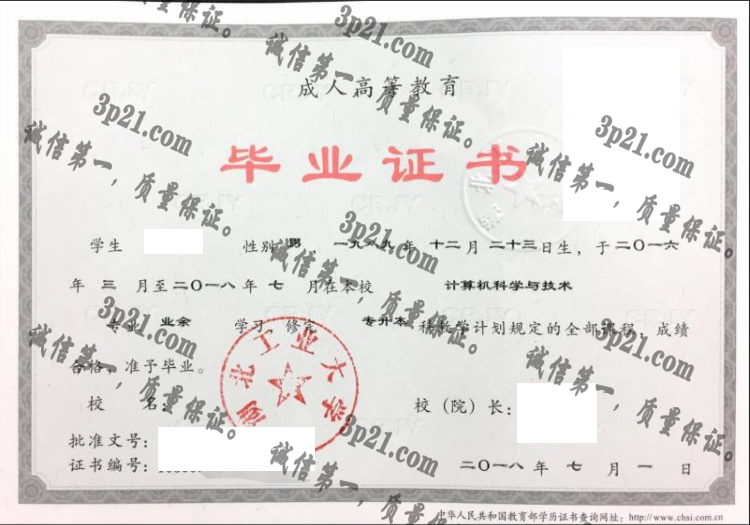 成人高等教育
毕业证书
学生 性别 男 一九八九年 十二月 二十三日生，于二〇一六
年 三 月至二〇一八年 七 月在本校 计算机科学与技术
专业 业余 学习 修完 专升本 科教学计划规定的全部课程，成绩
合格，准予毕业。
校 名：
湖北工业大学
校（院）长：
批准文号：
证书编号：
二〇一八年 七 月 一 日
中华人民共和国教育部学历证书查询网址：http://www.chsi.com.cn
3p21.com
诚信第一，质量保证。
3p21.com
诚信第一，质量保证。
3p21.com
诚信第一，质量保证。
3p21.com
诚信第一，质量保证。
3p21.com
诚信第一，质量保证。
3p21.com
诚信第一，质量保证。
3p21.com
诚信第一，质量保证。
3p21.com
诚信第一，质量保证。